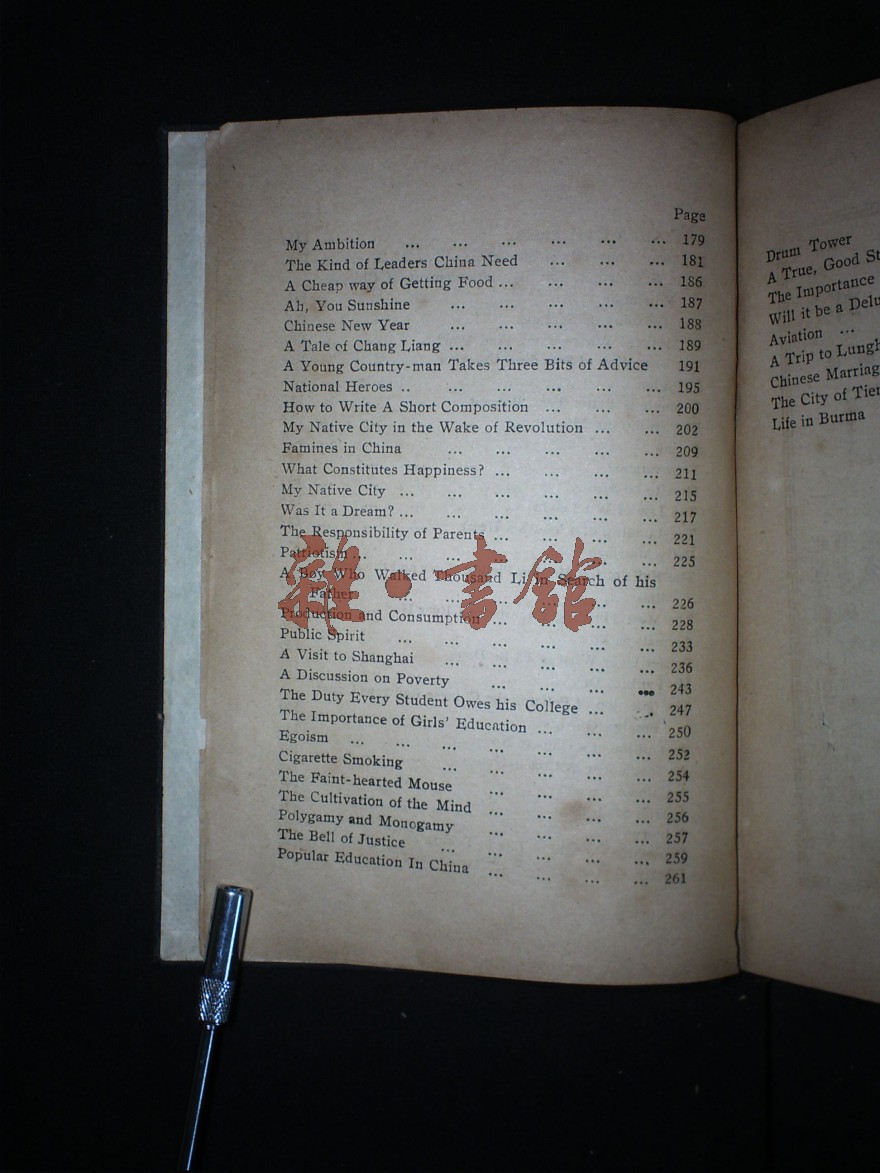 Page
My Ambition ... ... ... ... ... ... 179
The Kind of Leaders China Need ... ... ... 181
A Cheap way of Getting Food ... ... ... ... 186
Ah, You Sunshine ... ... ... ... ... 187
Chinese New Year ... ... ... ... ... 188
A Tale of Chang Liang ... ... ... ... ... 189
A Young Country-man Takes Three Bits of Advice 191
National Heroes .. ... ... ... ... ... 195
How to Write A Short Composition ... ... ... 200
My Native City in the Wake of Revolution ... ... 202
Famines in China ... ... ... ... ... 209
What Constitutes Happiness? ... ... ... ... 211
My Native City ... ... ... ... ... ... 215
Was It a Dream? ... ... ... ... ... ... 217
The Responsibility of Parents ... ... ... ... 221
Patriotism ... ... ... ... ... ... ... 225
A Boy Who Walked Thousand Li in Search of his
Father ... ... ... ... ... ... 226
Production and Consumption ... ... ... ... 228
Public Spirit ... ... ... ... ... ... 233
A Visit to Shanghai ... ... ... ... ... 236
A Discussion on Poverty ... ... ... ... 243
The Duty Every Student Owes his College ... ... 247
The Importance of Girls' Education ... ... ... 250
Egoism ... ... ... ... ... ... ... 252
Cigarette Smoking ... ... ... ... ... 254
The Faint-hearted Mouse ... ... ... ... 255
The Cultivation of the Mind ... ... ... ... 256
Polygamy and Monogamy ... ... ... ... 257
The Bell of Justice ... ... ... ... ... 259
Popular Education In China ... ... ... ... 261
雜·書館
Drum Tower
A True, Good
The Importance
Will it be a
Aviation ...
A Trip to
Chinese
The City of
Life in Burma